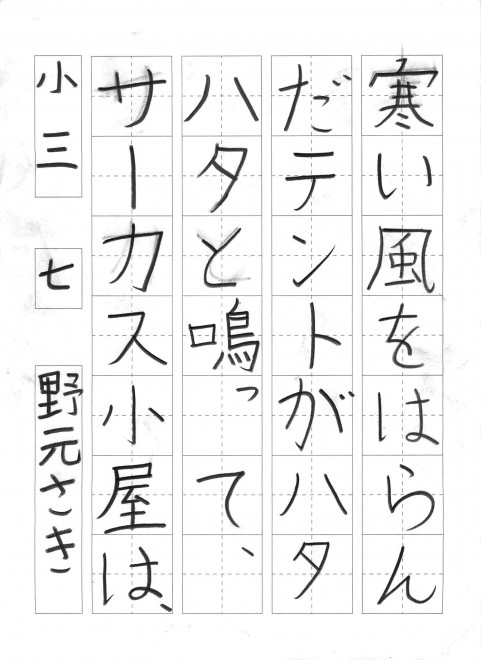 寒い風をはらん
だテントがハタ
ハタと鳴って、
サーカス小屋は、
小三 七 野元さき